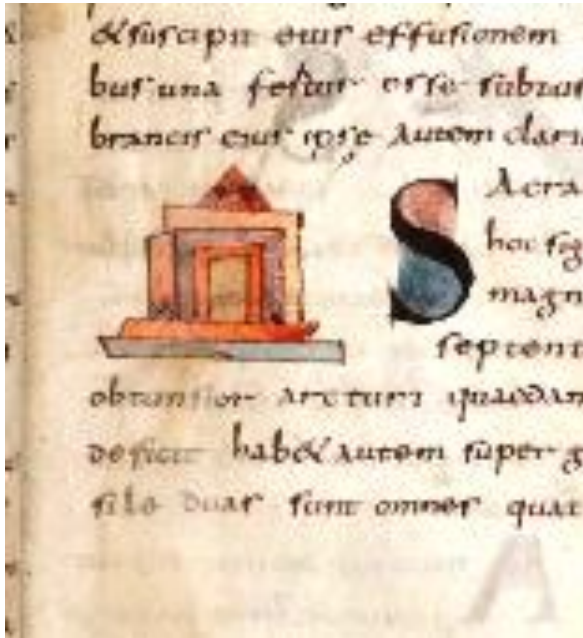 &suscipit eius effusionem
bus una festur esse subtus
brancis eius ipse autem clari
Sacra
hoc sig
magn
septent
obtunsior arcturi quaedam
deficit hab& autem super g
sile duas sunt omnes quat
A